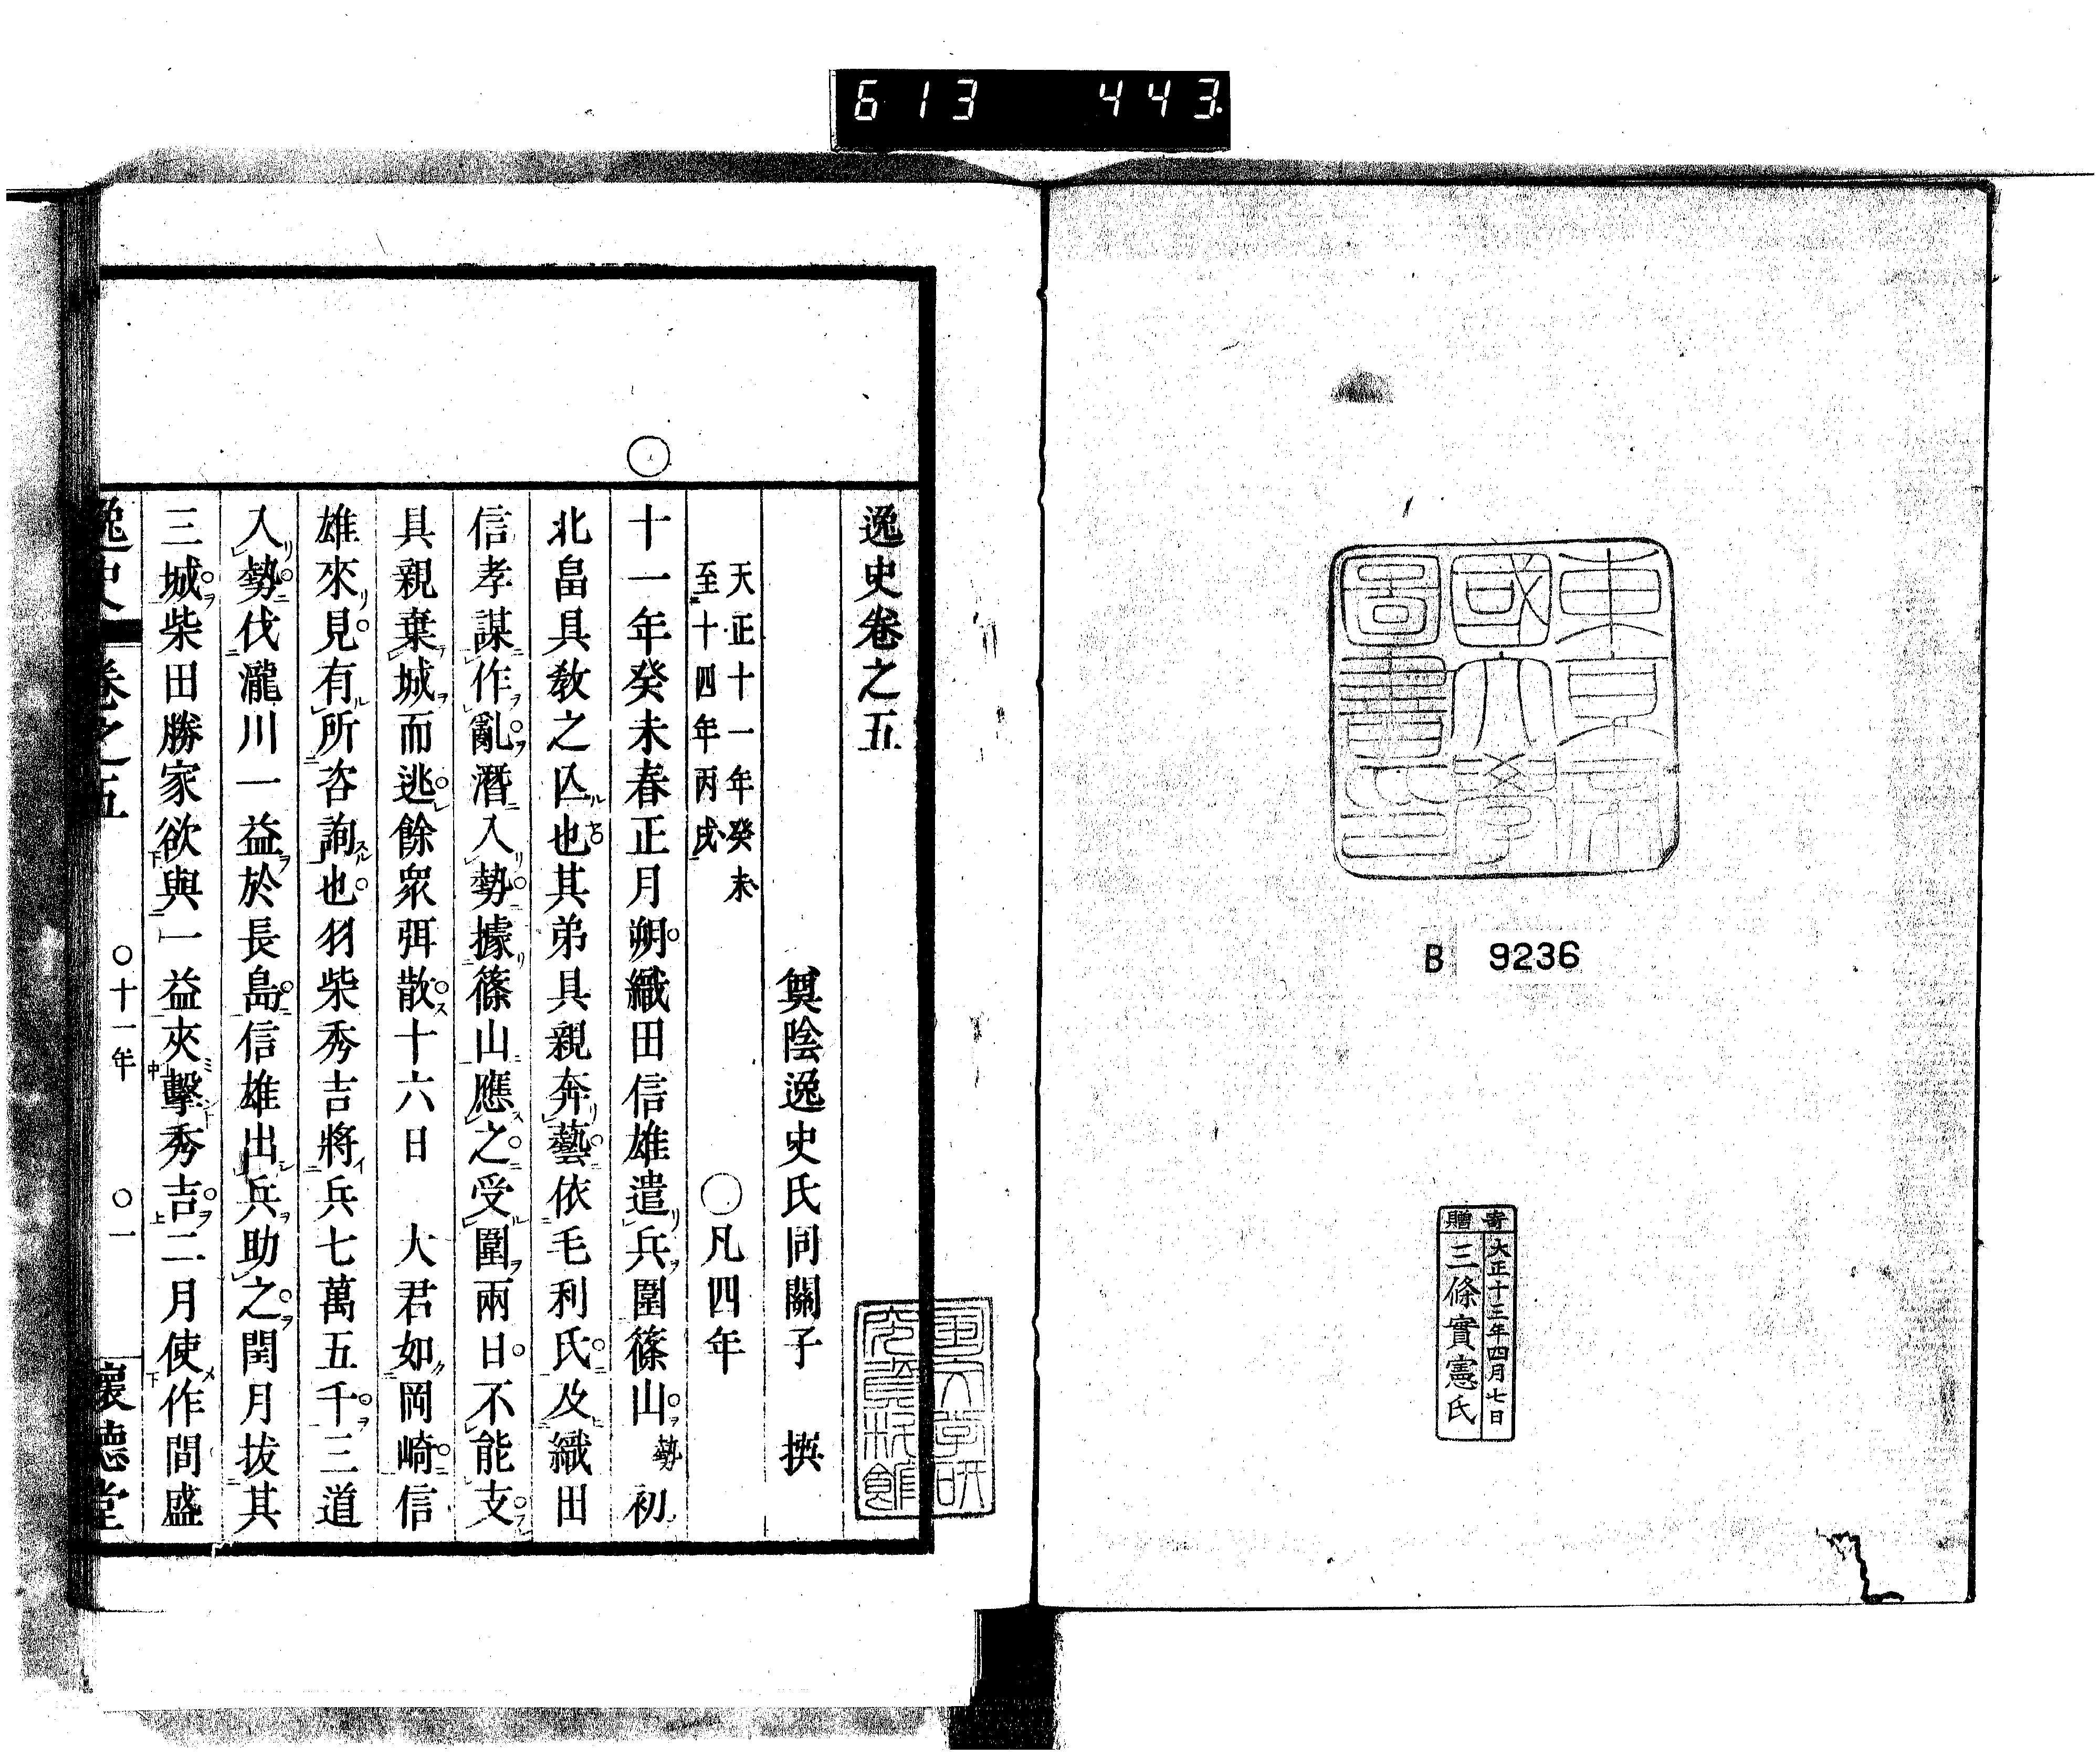 613 443.
東京帝
國大學
圖書之印
B 9236
寄贈
大正十三年四月七日
三條實憲氏
國文学研
究資料館
逸史卷之五
奠陰逸史氏同關子 撰
天正十一年癸未
至十四年丙戌
○凡四年
○
十一年癸未春正月朔織田信雄遣兵圍篠山勢初
北畠具教之亾也其弟具親奔藝依毛利氏及織田
信孝謀作亂潛入勢據篠山應之受圍兩日不能支
具親棄城而逃餘衆弭散十六日 大君如岡崎信
雄來見有所咨詢也羽柴秀吉將兵七萬五千三道
入勢伐瀧川一益於長島信雄出兵助之閏月拔其
三城柴田勝家欲與一益夾擊秀吉二月使作間盛
逸史 卷之五 ○十一年 ○一 懷德堂